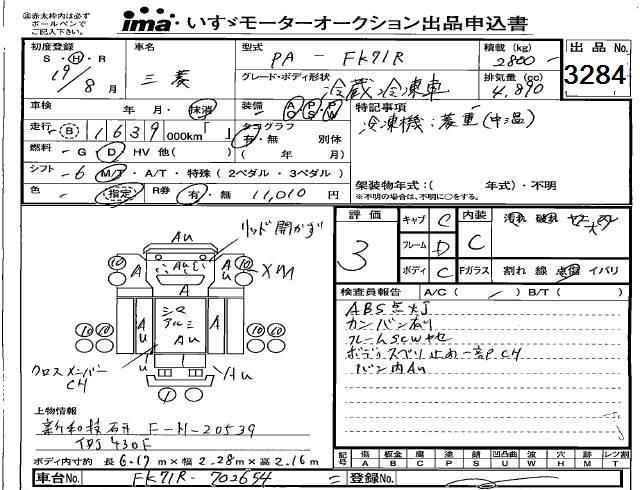 ※赤太枠内は必ず
ボールペンで
ご記入下さい。
ima いすゞモーターオークション出品申込書
初度登録 車名 型式 積載(kg) 出品No.
S・H・R 19/8月 三菱 PA-FK71R 2800 3284
グレード・ボディ形状 冷蔵冷凍車 排気量(cc) 4,890
車検 年・月・抹消 装備 A/C P/S P/W 特記事項
走行 1639 000km「 」 タコグラフ 有・無 別体 冷凍機:菱重(中温)
燃料 G D HV 他( ) ( 年 月)
シフト -6 M/T・A/T・特殊(2ペダル・3ペダル)
色 (指定) R券 有・無 11,010円
架装物年式:( 年式)・不明
※不明の場合は、不明に○をする。
評価 3
キャブ C 内装 C 汚れ 破れ
フレーム D
ボディ C Fガラス 割れ 線 点傷 イバリ
リッド開かず
AU
10 A AU AU 10 X刈
A
10 10 A シマ アルミ AU A 10 10
U U
クロスメンバー CH
AU
検査員報告 A/C( ) B/T( )
ABS点灯
カンバン有り
フレームSCWヤセ
ボディスベリ止め一部P CH
バン内AU
上物情報
F-H-20539
430F
ボディ内寸約 長6.17m×幅2.28m×高2.16m
記号 傷A 板金B 腐C 塗P 錆S 凹凸曲U 波W 穴H 跡M レンズ割T
車台No. FK71R-702654 登録No.